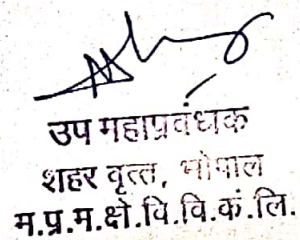 उप महाप्रवंधक
शहर वृत्त, भोपाल
म.प्र.म.क्षे.वि.वि.कं.लि.